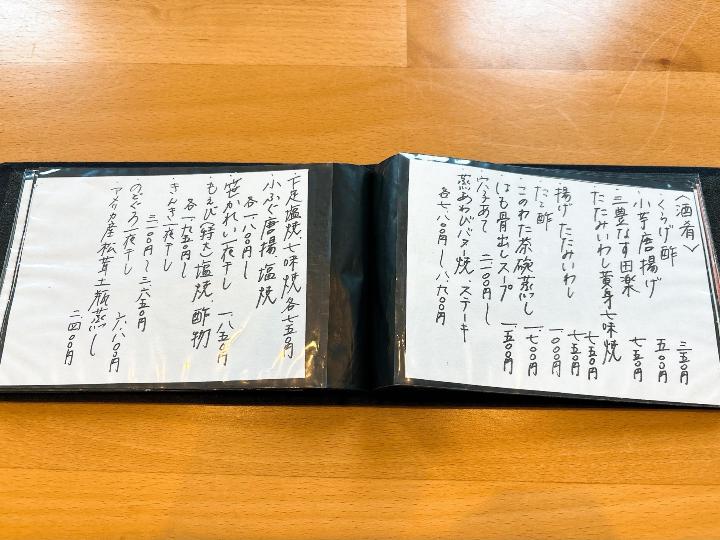 〈酒肴〉
・くらげ酢 三五〇円
・小芋唐揚げ 五〇〇円
・三豊なす田楽 七五〇円
・たたみいわし黄身七味焼 七五〇円
・揚げたたみいわし 七五〇円
・たこ酢 一〇〇〇円
・このわた茶碗蒸し 一、七〇〇円
・はも骨出しスープ 一、五〇〇円
・穴子あて 二一〇〇円〜
・蒸あわびバター焼、ステーキ
各七、八〇〇円〜八、九〇〇円
・下足塩焼、七味焼 各七五〇円
・小ふぐ唐揚、塩焼
各一、八〇〇円〜
・笹かれい一夜干し 一、八五〇円
・もえび(特大)塩焼、酢物
各一、九五〇円〜
・きんき一夜干し
三一〇〇円〜三、六五〇円
・のどぐろ一夜干し 六、八〇〇円
・アメリカ産松茸土瓶蒸し
二、四〇〇円